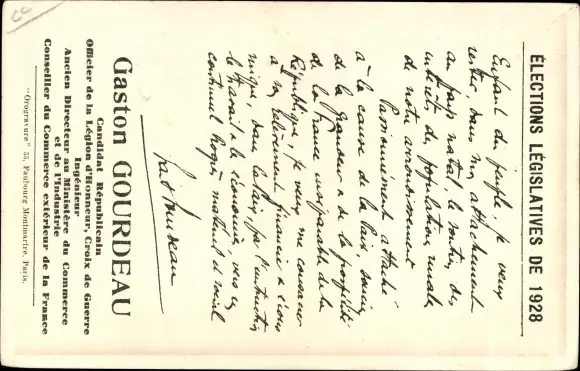 ÉLECTIONS LÉGISLATIVES DE 1928
Enfant du peuple je veux
rester, dans mon attachement
au pays natal, le soutien des
intérêts des populations rurales
de notre arrondissement
Passionnément attaché
à la cause de la paix, soucieux
de la grandeur & de la prospérité
de la France inséparable de la
République, je veux me consacrer
à son relèvement financier & écono
mique, dans la paix, par l'instruction
le travail & l'économie, vers un
continuel Progrès matériel et social
Gaston GOURDEAU
Candidat Républicain
Officier de la Légion d'Honneur, Croix de Guerre
Ingénieur
Ancien Directeur au Ministère du Commerce
et de l'Industrie
Conseiller du Commerce extérieur de la France
"Orogravure" 35, Faubourg Montmartre, Paris.